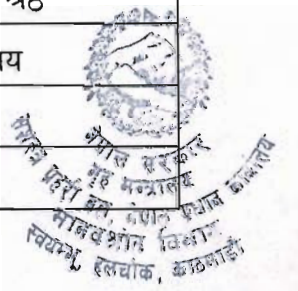 य
नेपाल सरकार
गृह मन्त्रालय
सशस्त्र प्रहरी बल, नेपाल प्रधान कार्यालय
मानवश्रोत विभाग
स्वयम्भू, हलचोक, काठमाडौं